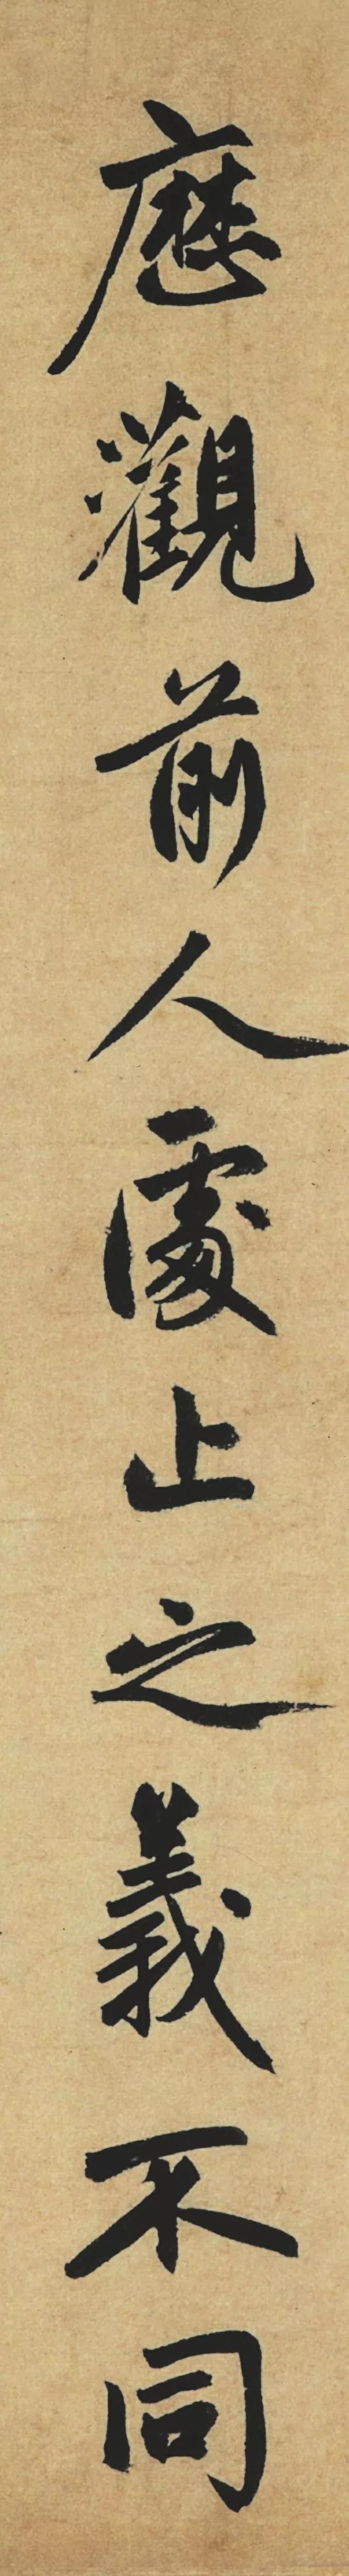 歷觀前人處止之義不同